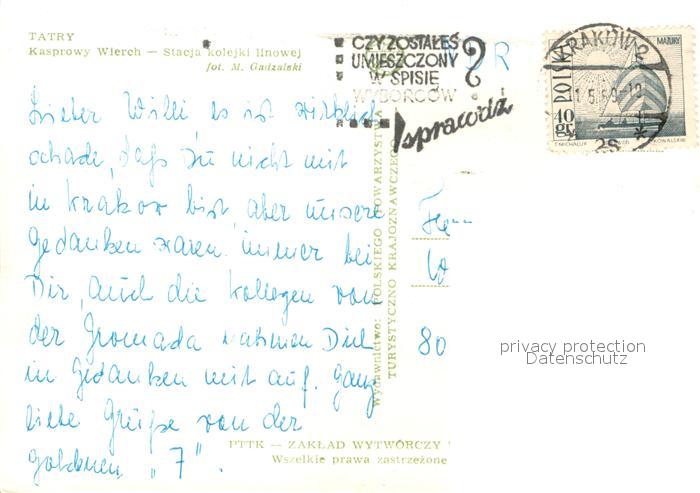 TATRY
Kasprowy Wierch — Stacja kolejki linowej
fot. M. Gadzalski
CZY ZOSTAŁEŚ
UMIESZCZONY
W SPISIE
WYBORCÓW ?
sprawdź
DR
KRAKÓW 2
POLSKA
MAZURY
40 gr
T. MICHALUK
KOWALSKI
Lieber Willi es ist wirklich
schade, daß Du nicht mit
in Krakow bist, aber unsere
Gedanken waren immer bei
Dir, auch die Kollegen von
der Gromada nahmen Dich
in Gedanken mit auf. Ganz
liebe Grüße von der
goldenen „7".
Wydawnictwo: POLSKIEGO TOWARZYSTWA
TURYSTYCZNO KRAJOZNAWCZEGO
80
privacy protection
Datenschutz
PTTK — ZAKŁAD WYTWÓRCZY
Wszelkie prawa zastrzeżone